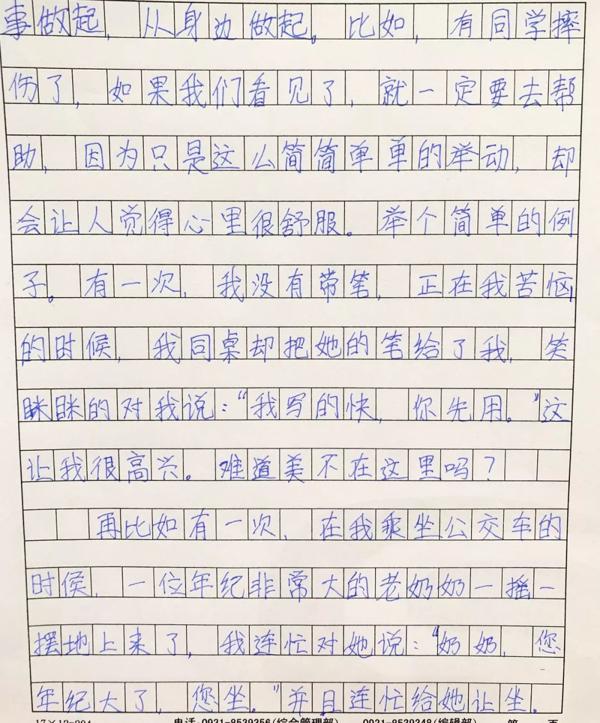 事做起，从身边做起。比如，有同学摔
伤了，如果我们看见了，就一定要去帮
助，因为只是这么简简单单的举动，却
会让人觉得心里很舒服。举个简单的例
子。有一次，我没有带笔，正在我苦恼
的时候，我同桌却把她的笔给了我，笑
眯眯的对我说："我写的快，你先用。"这
让我很高兴。难道美不在这里吗？
再比如有一次，在我乘坐公交车的
时候，一位年纪非常大的老奶奶一摇一
摆地上来了，我连忙对她说："奶奶，您
年纪大了，您坐。"并且连忙给她让坐。
17×12=204 电话 0931-8539356(综合管理部) 0931-8539348(编辑部) 第 页